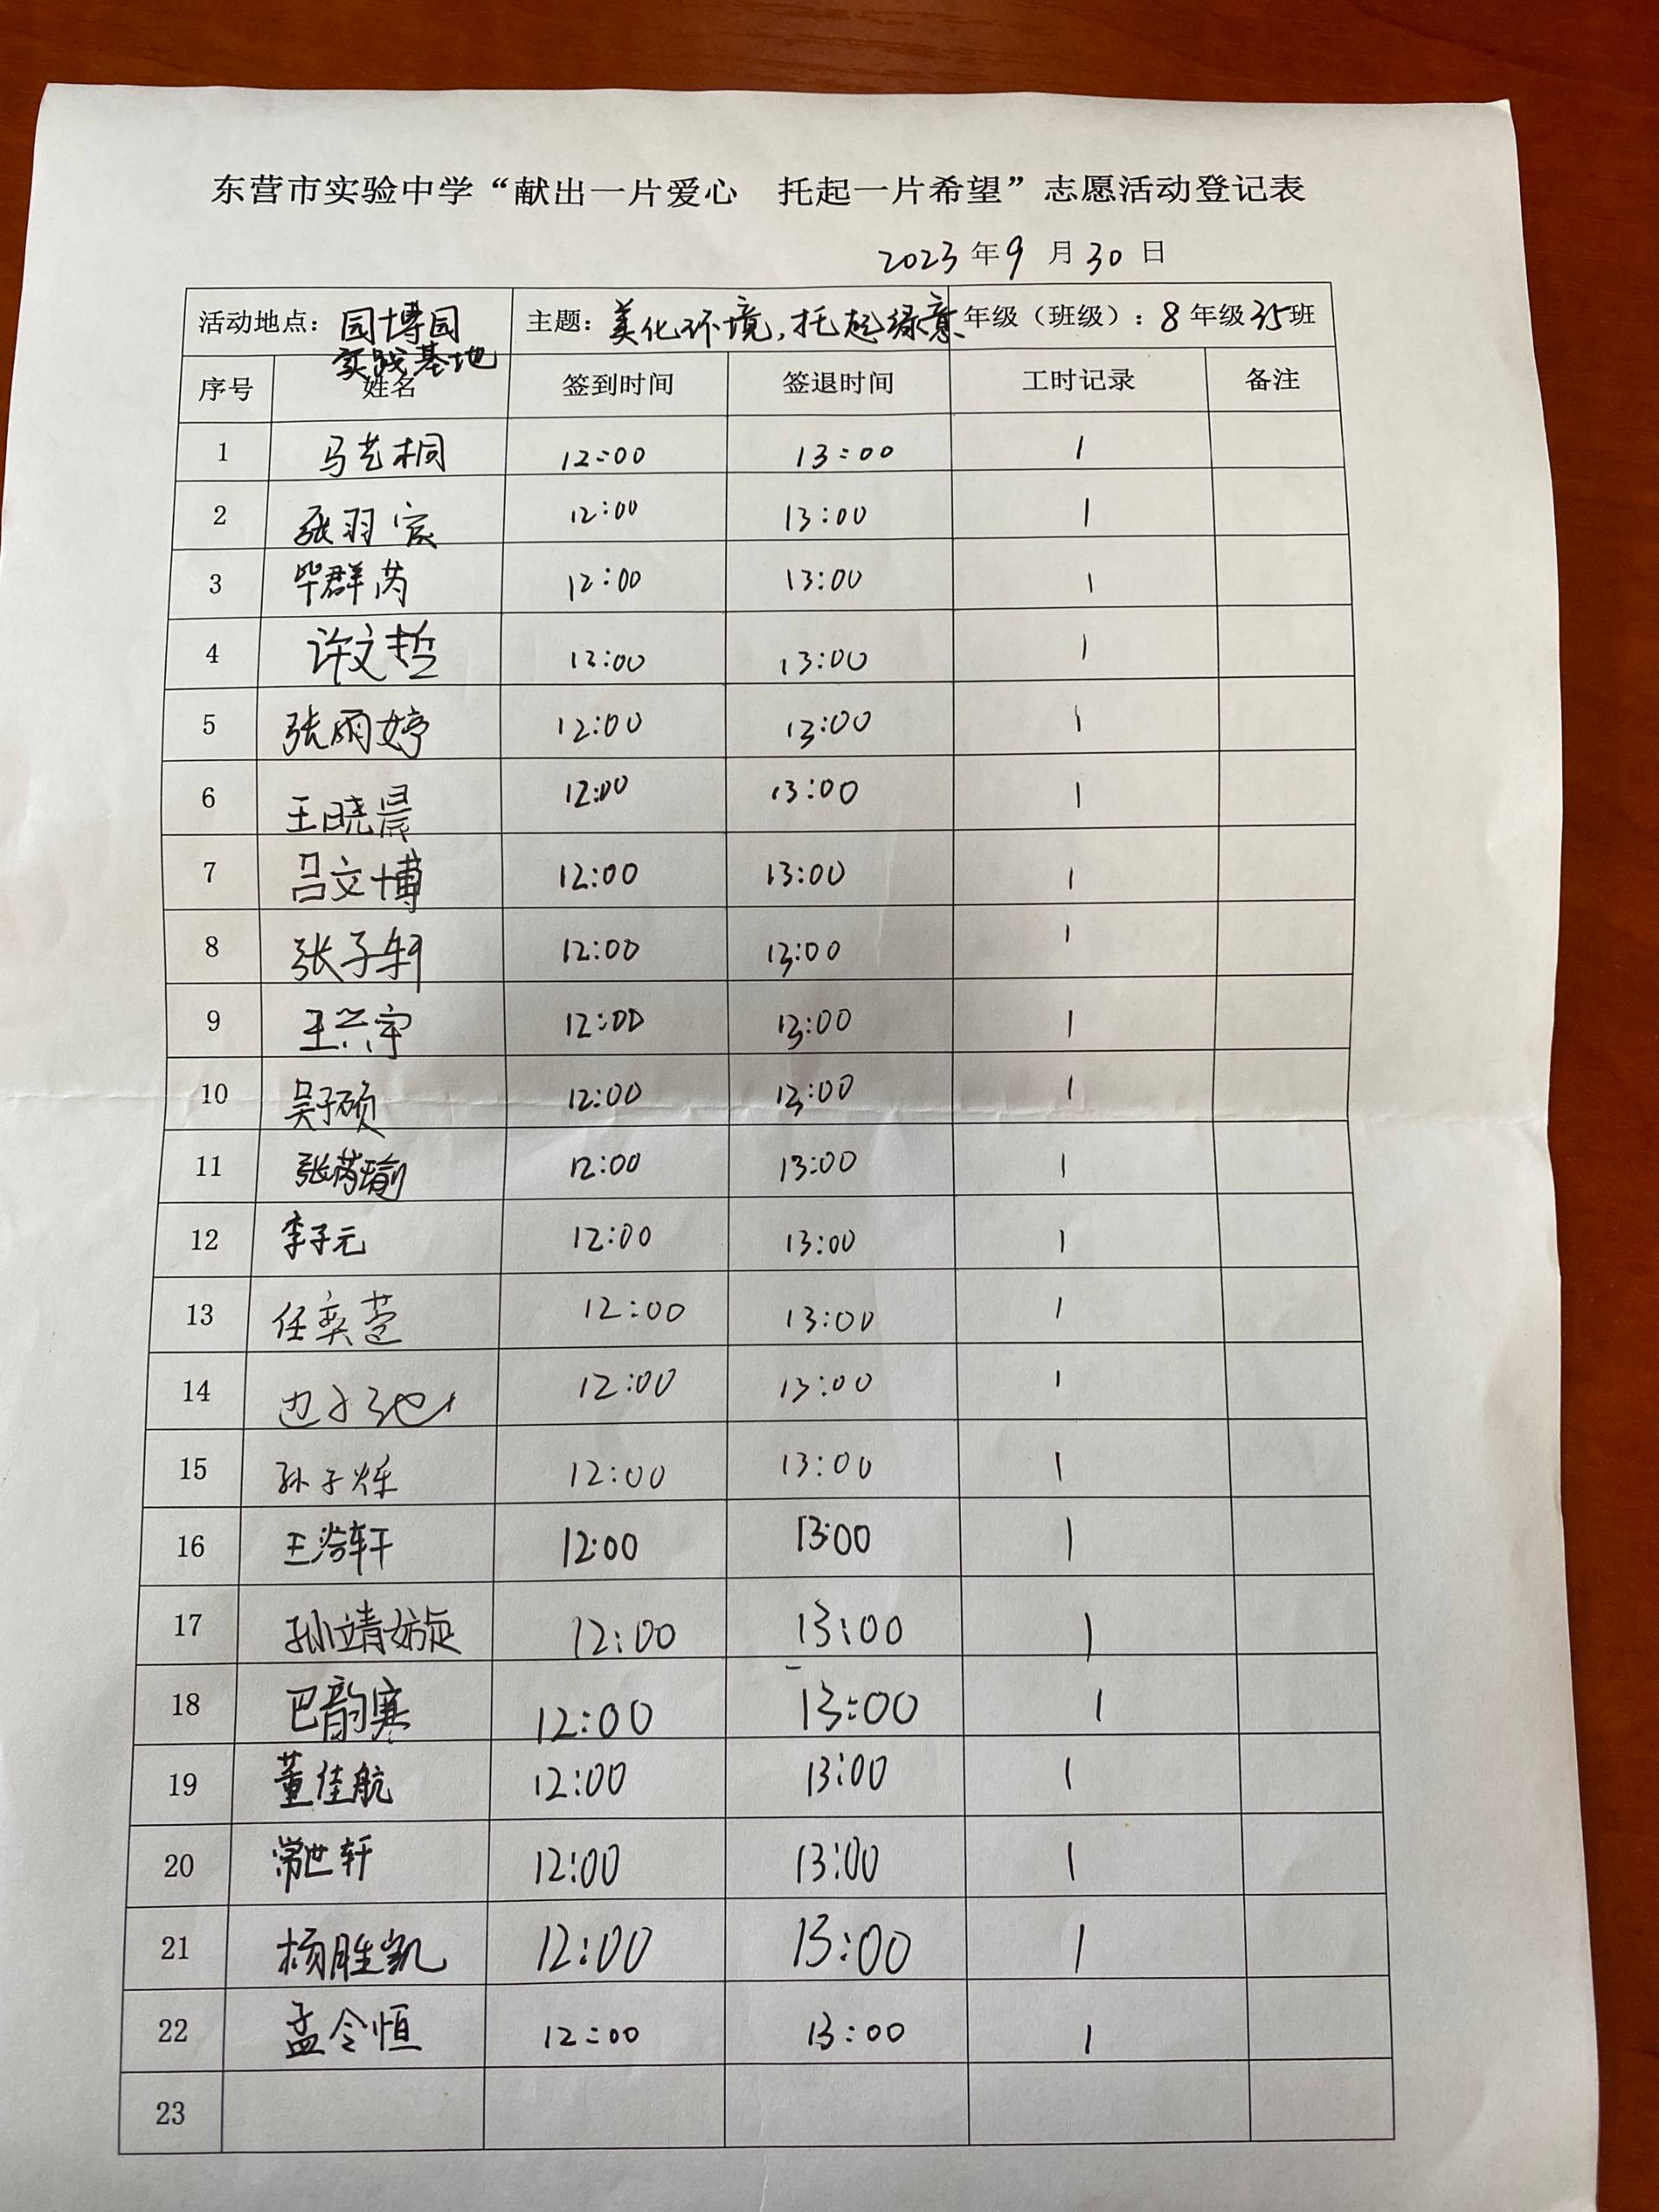 东营市实验中学“献出一片爱心 托起一片希望”志愿活动登记表
2023年9月30日
活动地点：园博园实践基地 主题：美化环境，托起绿意 年级（班级）：8年级35班
序号 姓名 签到时间 签退时间 工时记录 备注
1 马艺桐 12:00 13:00 1
2 张羽宸 12:00 13:00 1
3 毕群芮 12:00 13:00 1
4 许文哲 12:00 13:00 1
5 张雨婷 12:00 13:00 1
6 王晓晨 12:00 13:00 1
7 吕文博 12:00 13:00 1
8 张子轩 12:00 13:00 1
9 王兴宇 12:00 13:00 1
10 吴子硕 12:00 13:00 1
11 张芮瑜 12:00 13:00 1
12 李子元 12:00 13:00 1
13 任奕萱 12:00 13:00 1
14 12:00 13:00 1
15 孙子烁 12:00 13:00 1
16 王浩轩 12:00 13:00 1
17 孙靖嫙 12:00 13:00 1
18 巴韵寒 12:00 13:00 1
19 董佳航 12:00 13:00 1
20 常世轩 12:00 13:00 1
21 杨胜凯 12:00 13:00 1
22 孟令恒 12:00 13:00 1
23